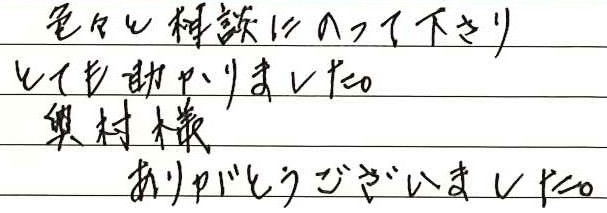 色々と相談にのって下さり
とても助かりました。
奥村様
ありがとうございました。